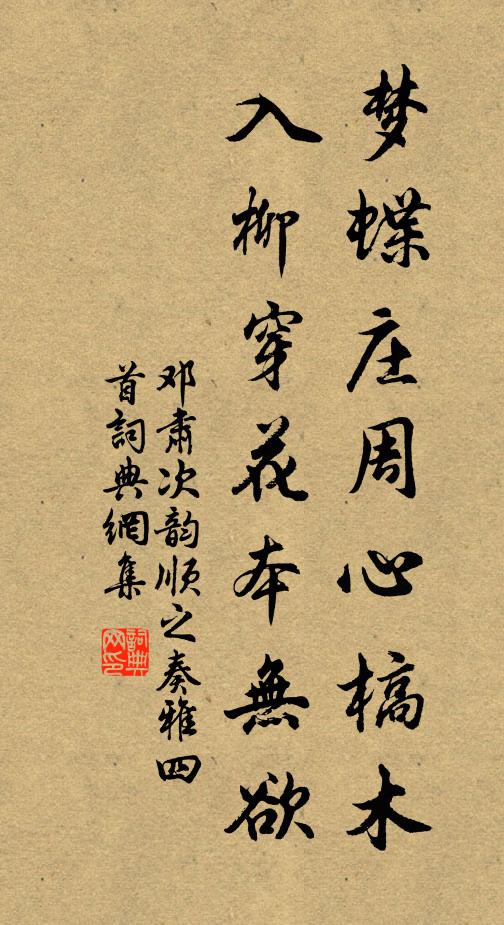 梦蝶庄周心槁木
入柳穿花本無欲
邓肃次韵順之奏雅四
首詞典網集
詞典
网印